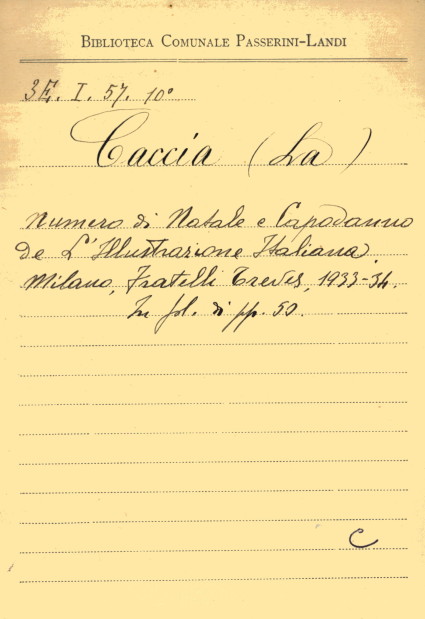 BIBLIOTECA COMUNALE PASSERINI-LANDI
3E. I. 57. 10°
Caccia (La)
Numero di Natale e Capodanno
de L'Illustrazione Italiana.
Milano, Fratelli Treves, 1933-34.
In fol. di pp. 50.
C